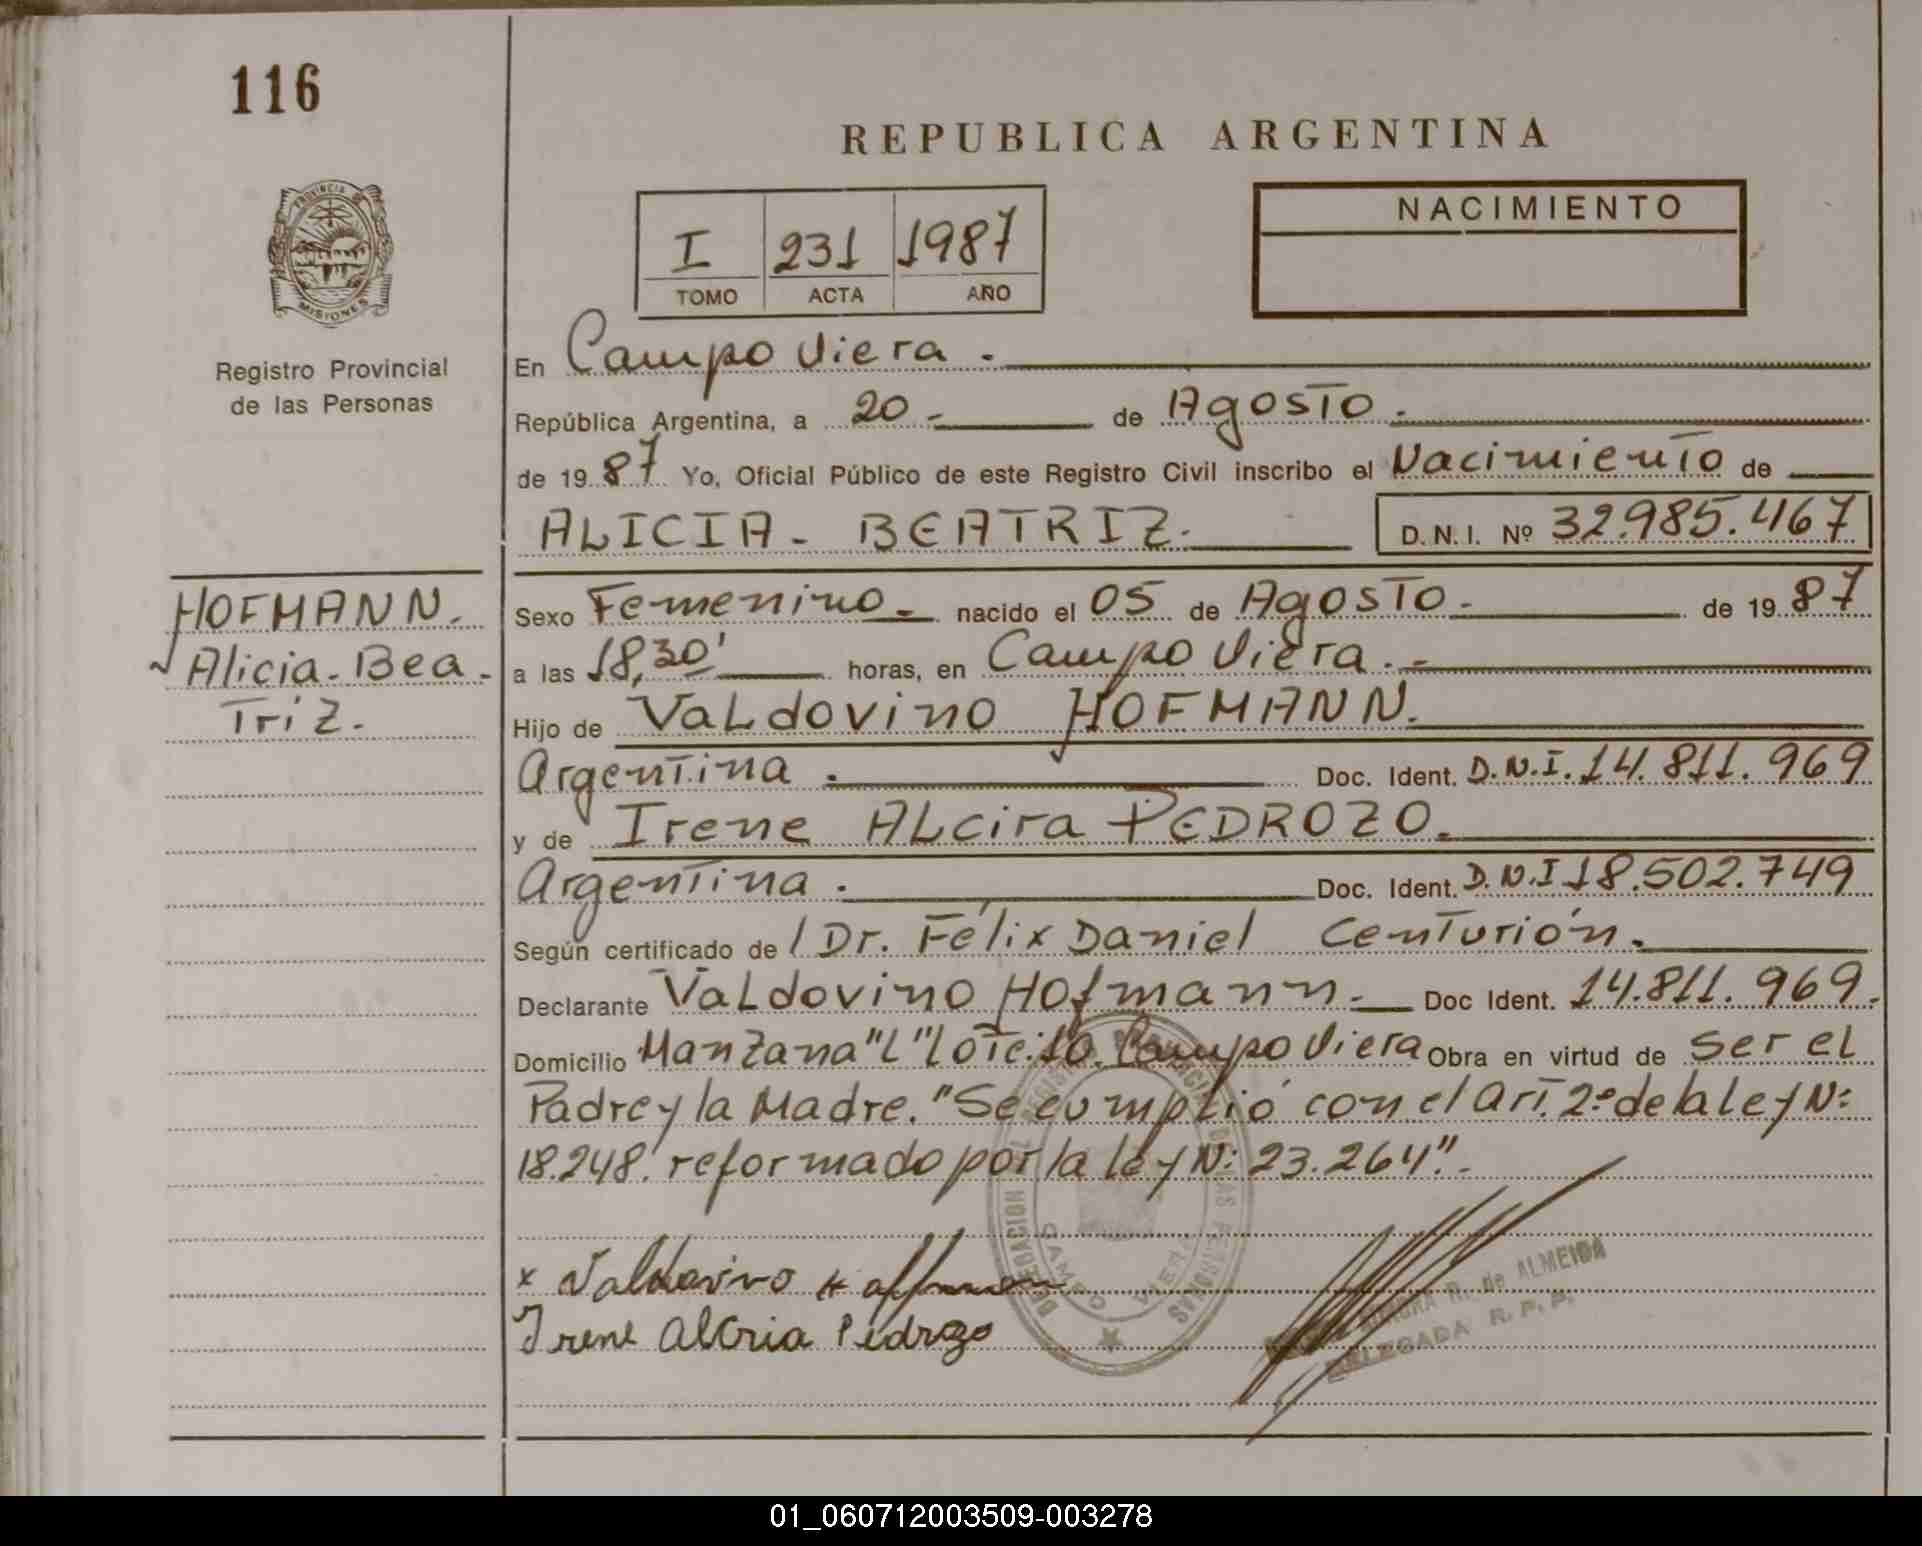 116
REPUBLICA ARGENTINA
PROVINCIA DE
MISIONES
NACIMIENTO
I 231 1987
TOMO ACTA AÑO
Registro Provincial
de las Personas
En Campo Viera.
República Argentina, a 20 - de Agosto.
de 1987 Yo, Oficial Público de este Registro Civil inscribo el Nacimiento de
ALICIA - BEATRIZ. D.N.I. Nº 32.985.467
HOFMANN.
Alicia - Bea -
Triz.
Sexo Femenino. - nacido el 05 de Agosto. de 1987
a las 18,30' horas, en Campo Viera. -
Hijo de Valdovino HOFMANN.
Argentina. Doc. Ident. D.N.I. 14.811.969
y de Irene Alcira PEDROZO.
Argentina. Doc. Ident. D.N.I 18.502.749
Según certificado de / Dr. Félix Daniel Centurión.
Declarante Valdovino Hofmann. - Doc Ident. 14.811.969.
Domicilio Manzana "L" Lote: 10. Campo Viera Obra en virtud de ser el
Padre y la Madre. "Se cumplió con el art. 2º de la ley Nº:
18.248. reformado por la ley Nº: 23.264". -
x Valdovino Hoffmann
Irene Alcria Pedrozo
DELEGACION
CAMPO VIERA
PERSONAS
R. de ALMEIDA
DELEGADA R. P. P.
01_060712003509-003278